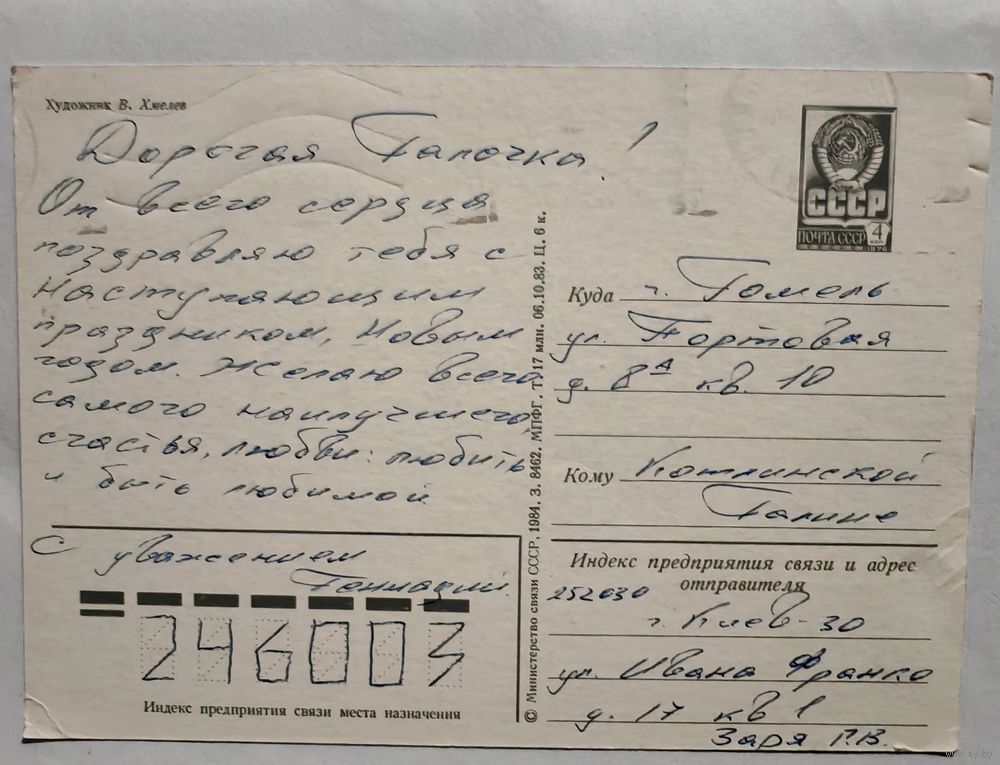 Художник В. Хмелев
Дорогая Галочка!
От всего сердца
поздравляю тебя с
наступающим
праздником, Новым
годом. Желаю всего
самого наилучшего,
счастья, любви: любить
и быть любимой
С уважением
Геннадий.
246003
Индекс предприятия связи места назначения
© Министерство связи СССР, 1984. З. 8462. МПФГ. Т. 17 млн. 06.10.83. Ц. 6 к.
СССР
ПОЧТА СССР 4
Куда г. Гомель
ул. Портовая
д. 8А кв. 10
Кому Котлинской
Галине
Индекс предприятия связи и адрес
отправителя
252030
г. Киев-30
ул. Ивана Франко
д. 17 кв 1
Заря Г.В.
www.ay.by